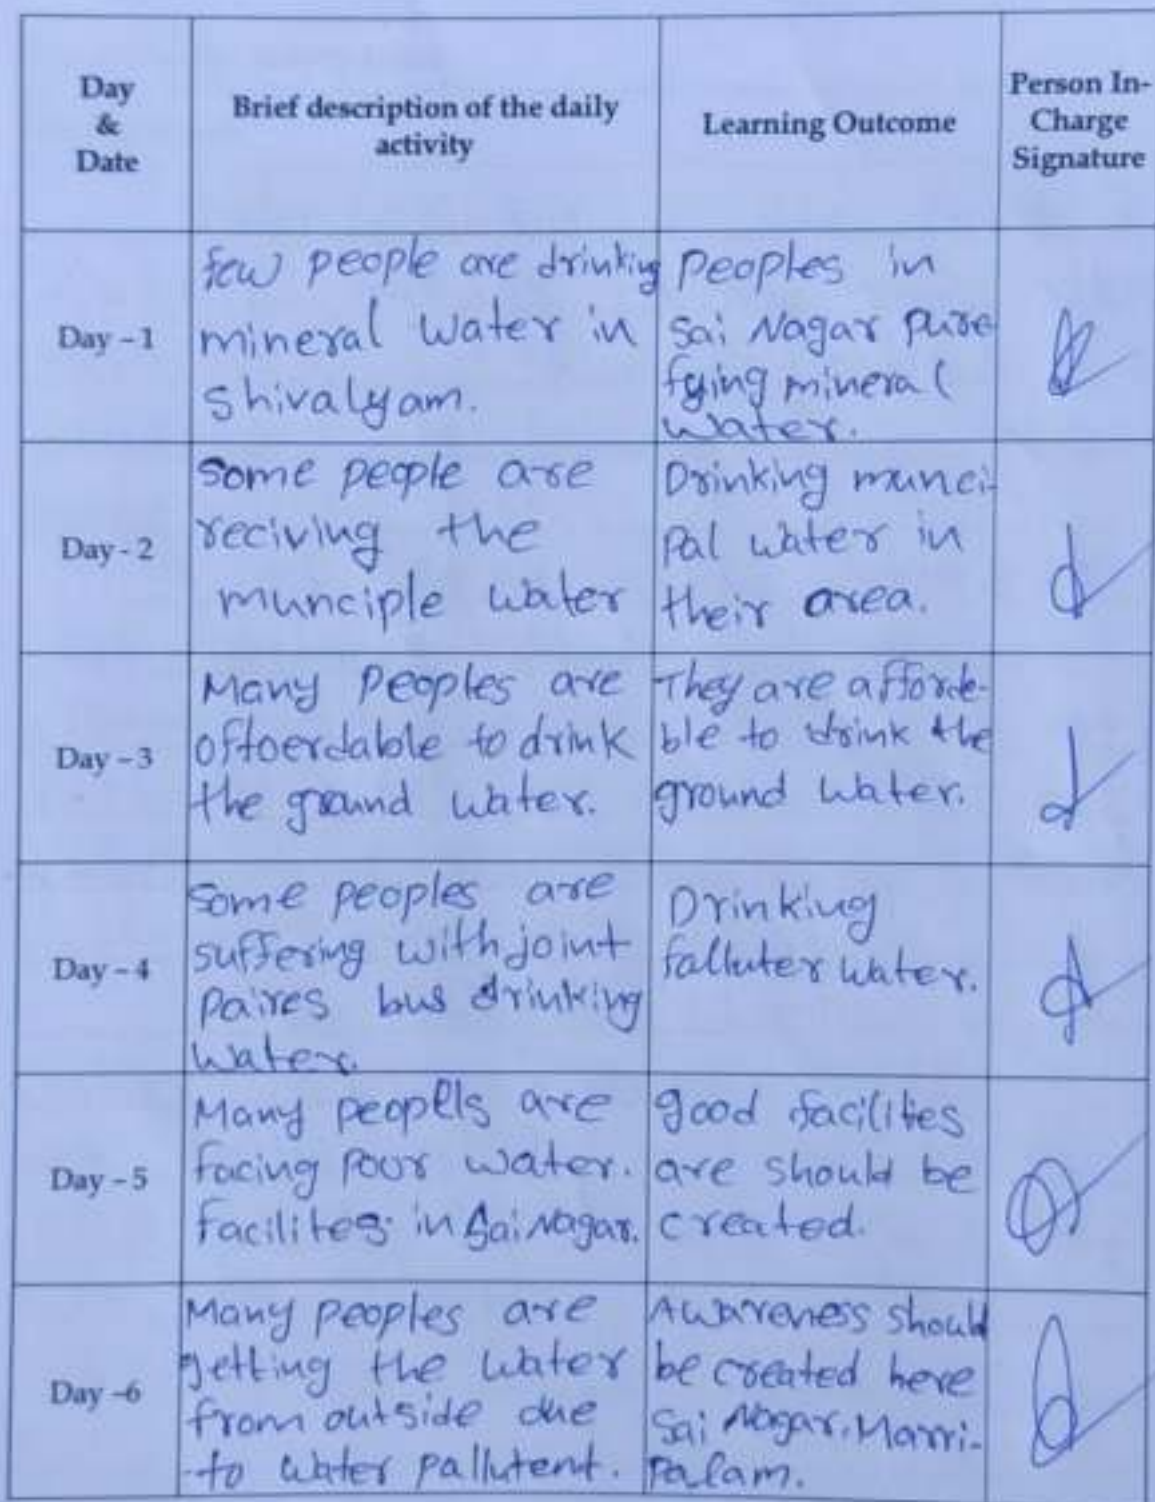 Day
&
Date
Brief description of the daily
activity
Learning Outcome
Person In-
Charge
Signature
Day - 1
few people are drinking
mineral water in
shivalyam.
peoples in
sai Nagar pure
fying mineral
water.
Day - 2
Some people are
reciving the
munciple water
Drinking munci-
pal water in
their area.
Day - 3
Many peoples are
oftoerdable to drink
the ground water.
They are afforde-
ble to drink the
ground water.
Day - 4
Some peoples are
suffering with joint
paires bus drinking
water.
Drinking
falluter water.
Day - 5
Many peoplls are
facing pour water.
facilites in Sai Nagar.
good facilities
are should be
created.
Day -6
Many peoples are
getting the water
from outside due
to water pallutent.
Awareness should
be created here
Sai Nagar, Marri-
palam.